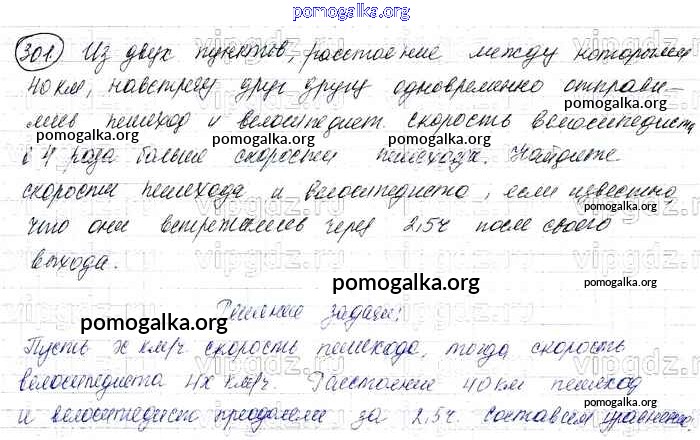 pomogalka.org
301 Из двух пунктов, расстояние между которыми
40 км, навстречу друг другу одновременно отправи-
pomogalka.org
лись пешеход и велосипедист. скорость велосипедиста
pomogalka.org pomogalka.org
в 4 раза больше скорости пешехода. Найдите
скорости пешехода и велосипедиста, если известно,
что они встретились через 2,5ч после своего
выхода.
pomogalka.org
Решение задачи:
pomogalka.org
Пусть x км/ч скорость пешехода, тогда скорость
pomogalka.org
велосипедиста 4x км/ч. Расстояние 40 км пешеход
и велосипедист преодолели за 2,5ч. составим уравнение.
pomogalka.org pomogalka.org